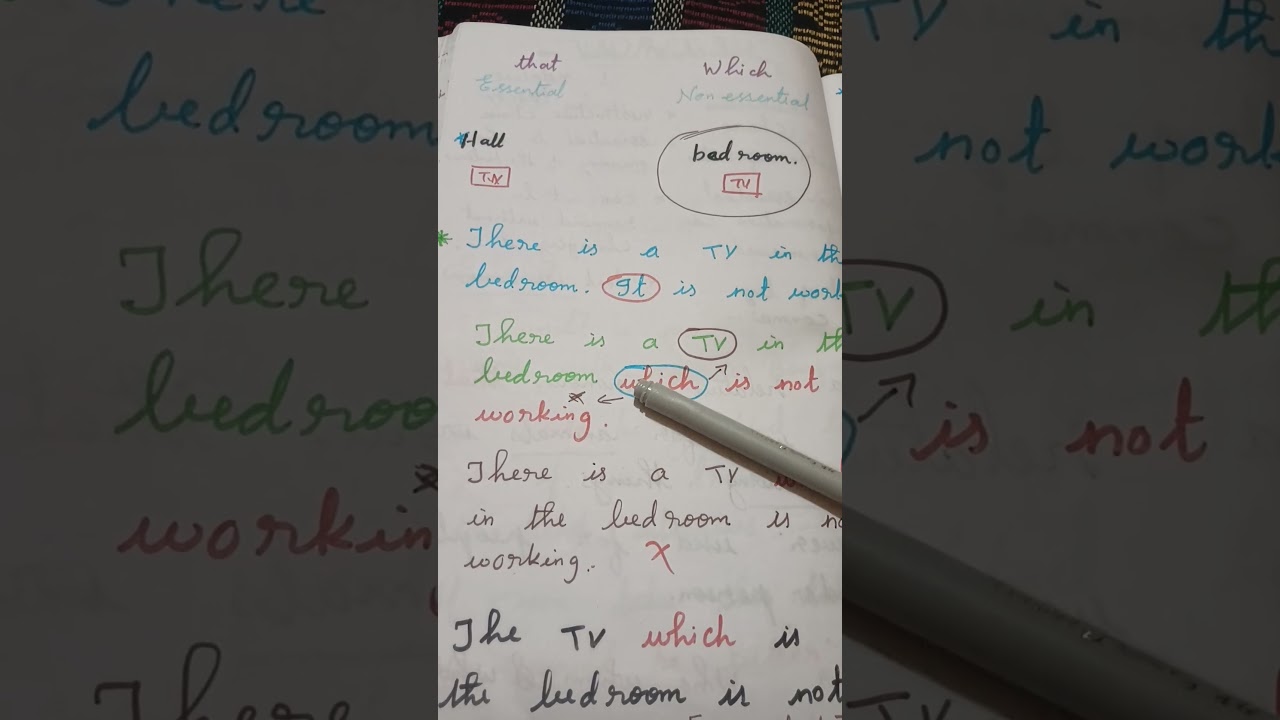 that Which
Essential Non essential
Hall bedroom.
TV TV
* There is a TV in th
bedroom. It is not work
There is a TV in th
bedroom which is not
working.
There is a TV
in the bedroom is no
working. X
The TV which is
the bedroom is not